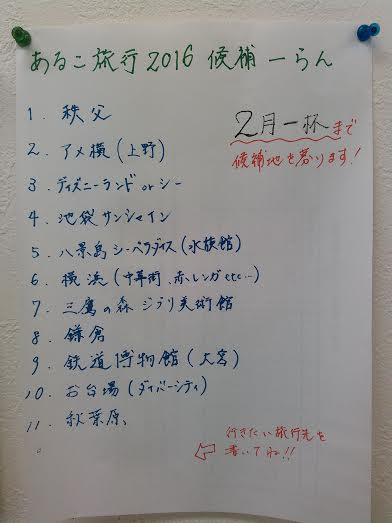 あるこ旅行2016 候補一らん
2月一杯まで
候補地を募ります!
1. 秩父
2. アメ横(上野)
3. ディズニーランド or シー
4. 池袋サンシャイン
5. 八景島シーパラダイス(水族館)
6. 横浜(中華街、赤レンガ etc…)
7. 三鷹の森 ジブリ美術館
8. 鎌倉
9. 鉄道博物館(大宮)
10. お台場(ダイバーシティ)
11. 秋葉原、
行きたい旅行先を
書いてね!!